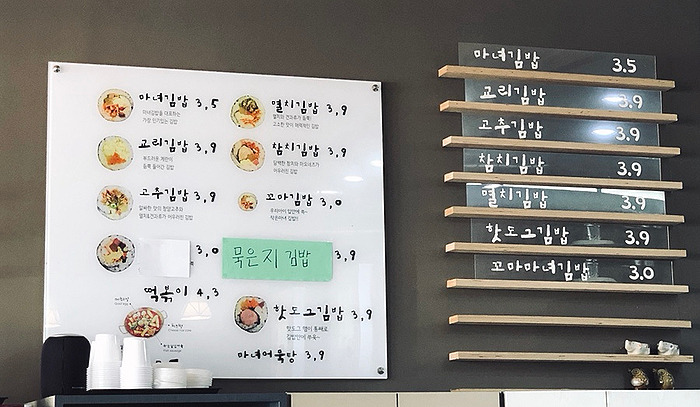 마녀김밥 3,5
마녀김밥을 대표하는
가장 인기있는 김밥
멸치김밥 3,9
멸치와 견과류가 듬뿍!
고소한 맛이 매력적인 김밥
교리김밥 3,9
부드러운 계란이
듬뿍 들어간 김밥
참치김밥 3,9
담백한 참치와 마요네즈가
어우러진 김밥
고추김밥 3,9
알싸한 맛의 청양고추와
멸치&견과류가 어우러진 김밥
꼬마김밥 3,0
우리아이 입안에 쏙~
작은마녀 김밥!!
3,0
묵은지 김밥 3,9
떡볶이 4,3
핫도그김밥 3,9
핫도그 햄이 통째로
김밥안에 쑤욱~
마녀어묵탕 3,9
마녀김밥 3.5
교리김밥 3.9
고추김밥 3.9
참치김밥 3.9
멸치김밥 3.9
핫도그김밥 3.9
꼬마마녀김밥 3.0